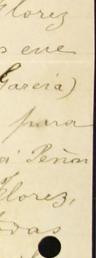 Florez
s ene
Garcia)
para
Peñon
Florez,
das